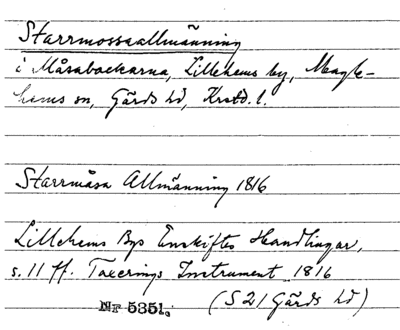 Starrmossaallmänning
i Måsabackarna, Lillehems by, Magle-
hems sn, Gärds hd, Krstd. l.
Starrmåsa Allmänning 1816
Lillehems Bys Enskiftes Handlingar,
s. 11 ff. Taxerings Instrument 1816
Nr 5351. (S 21 Gärds hd)